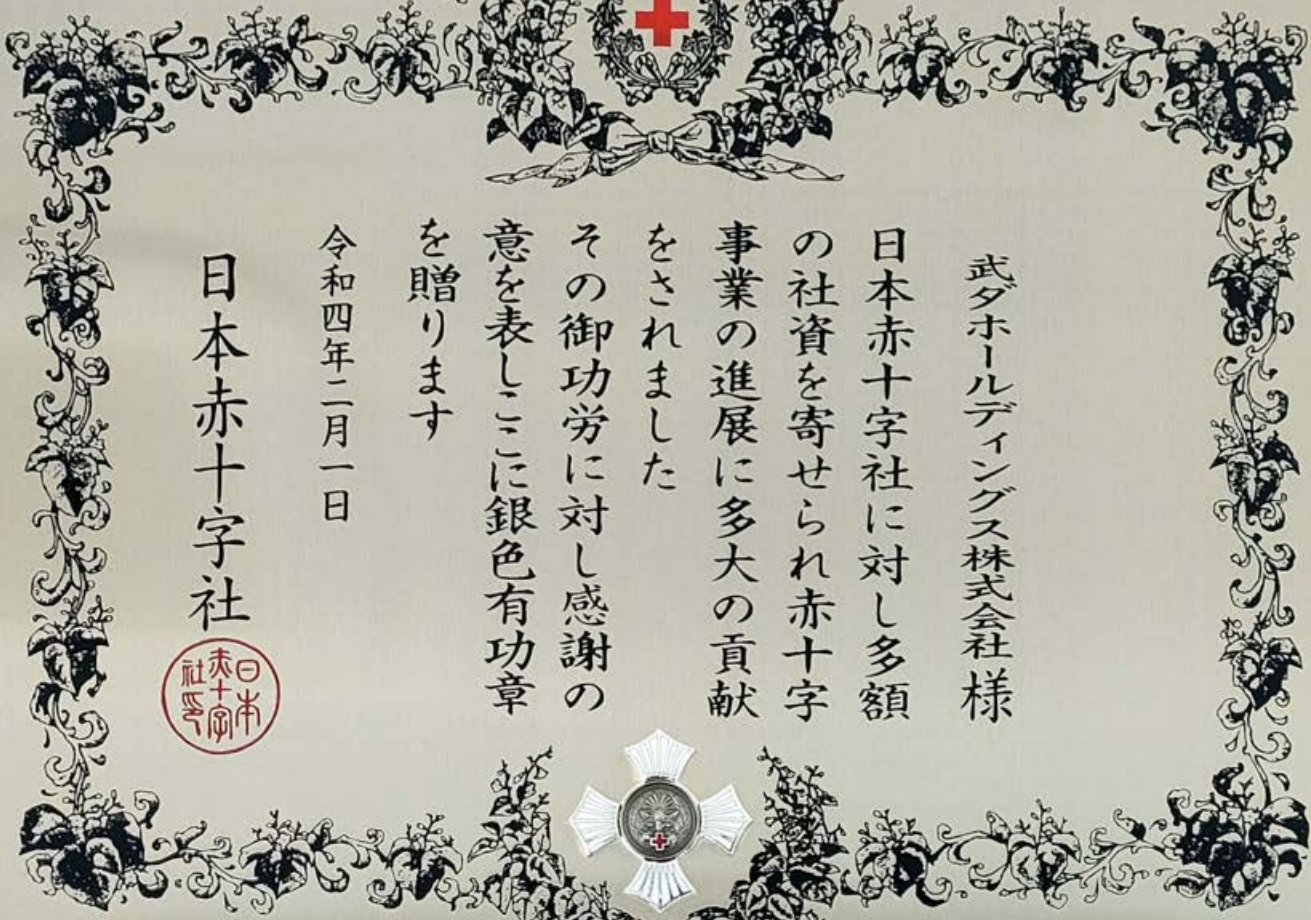 武ダホールディングス株式会社様
日本赤十字社に対し多額
の社資を寄せられ赤十字
事業の進展に多大の貢献
をされました
その御功労に対し感謝の
意を表しここに銀色有功章
を贈ります
令和四年二月一日
日本赤十字社
日本
赤十字
社印